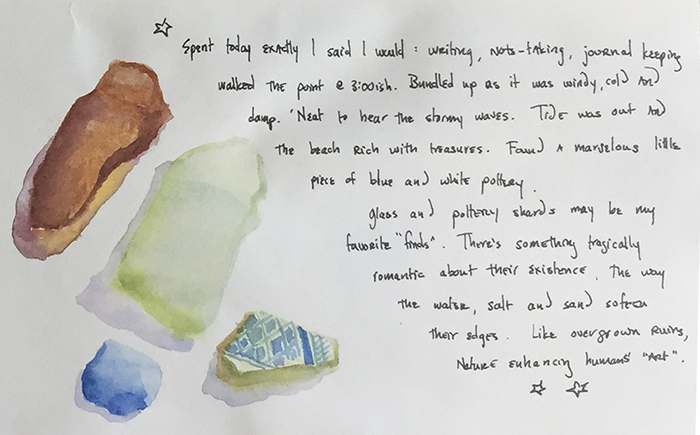 Spent today exactly I said I would : writing, note-taking, journal keeping
walked the point @ 3:00ish. Bundled up as it was windy, cold and
damp. 'Neat to hear the stormy waves. Tide was out and
the beach rich with treasures. Found a marvelous little
piece of blue and white pottery.
glass and pottery shards may be my
favorite "finds". There's something tragically
romantic about their existence. The way
the water, salt and sand soften
their edges. Like overgrown ruins,
Nature enhancing humans' "Art".